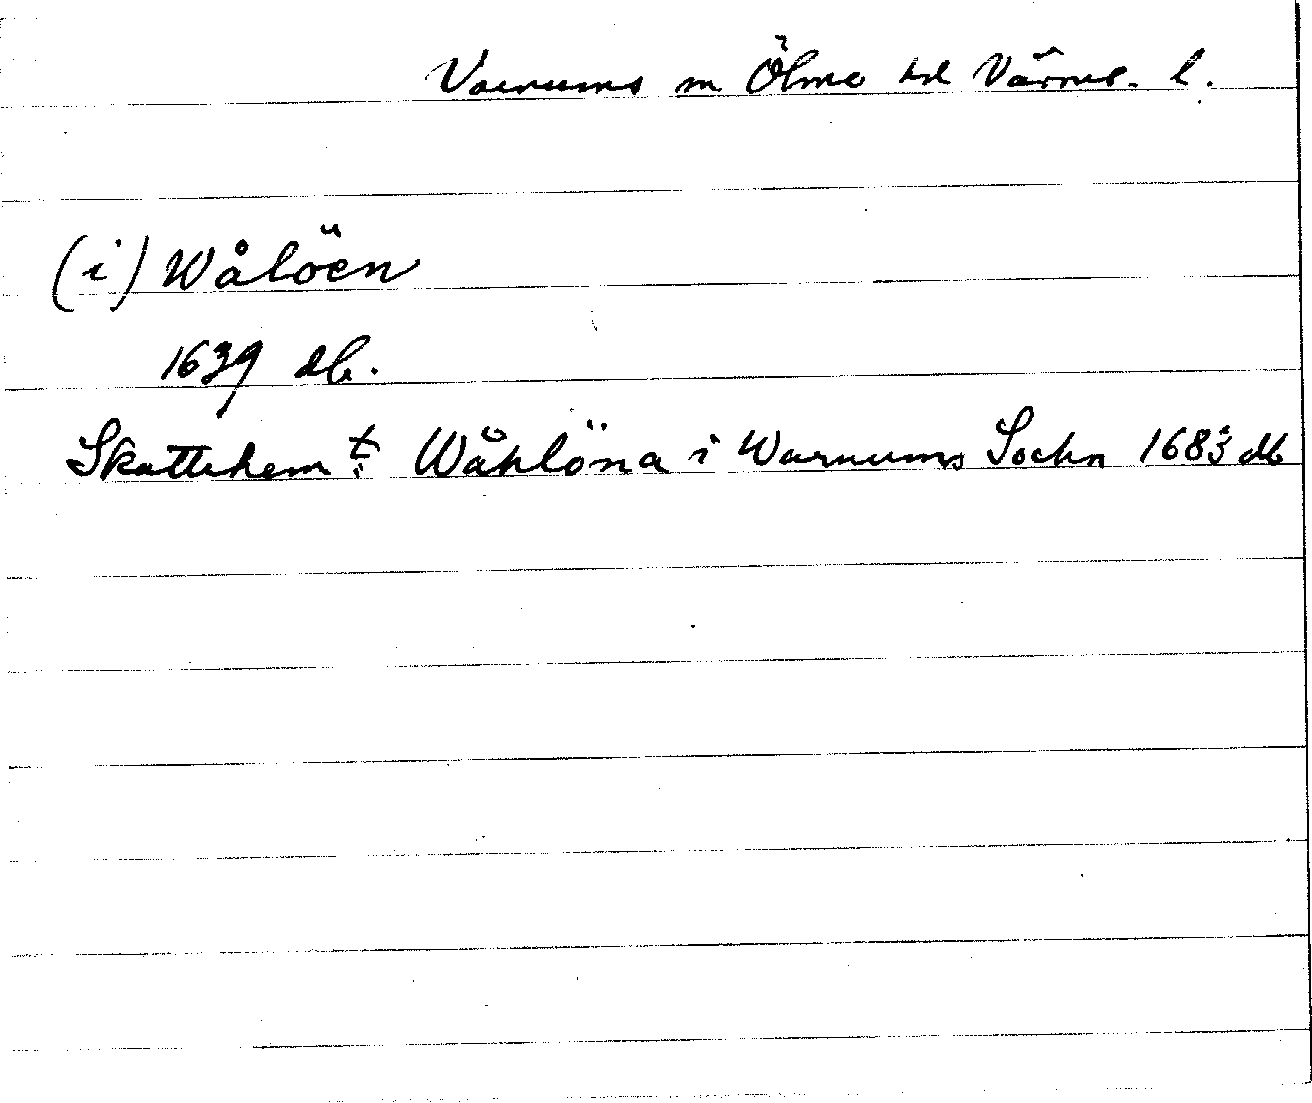 Varnums sn Ölme hd Värml. l.
(i) Wålöen
1639 db.
Skattehem t: Wåhlöna i Warnums Sochn 1683 db